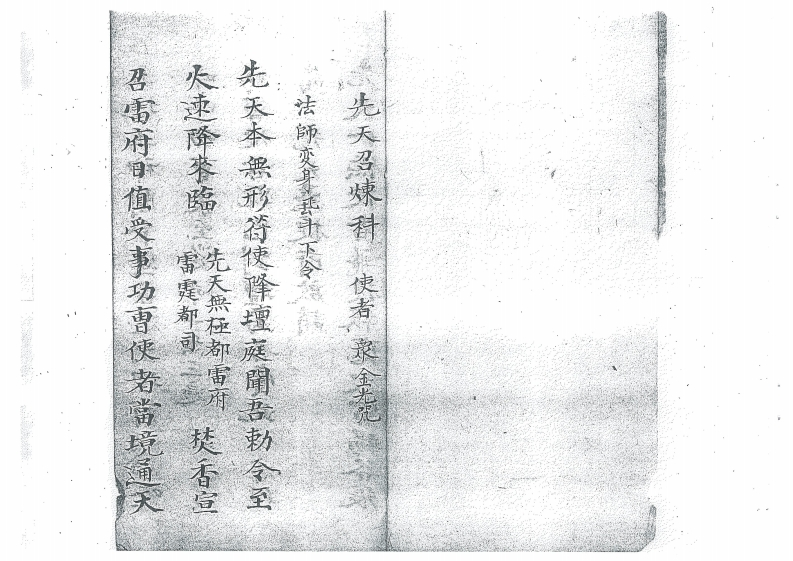 先天召煉科　使者　眾金光咒
法師变身去斗下令
先天本無形符使降壇庭聞吾勅令至
火速降來臨　先天無極都雷府
雷霆都司　焚香宣
召雷府日值受事功曹使者當境通天